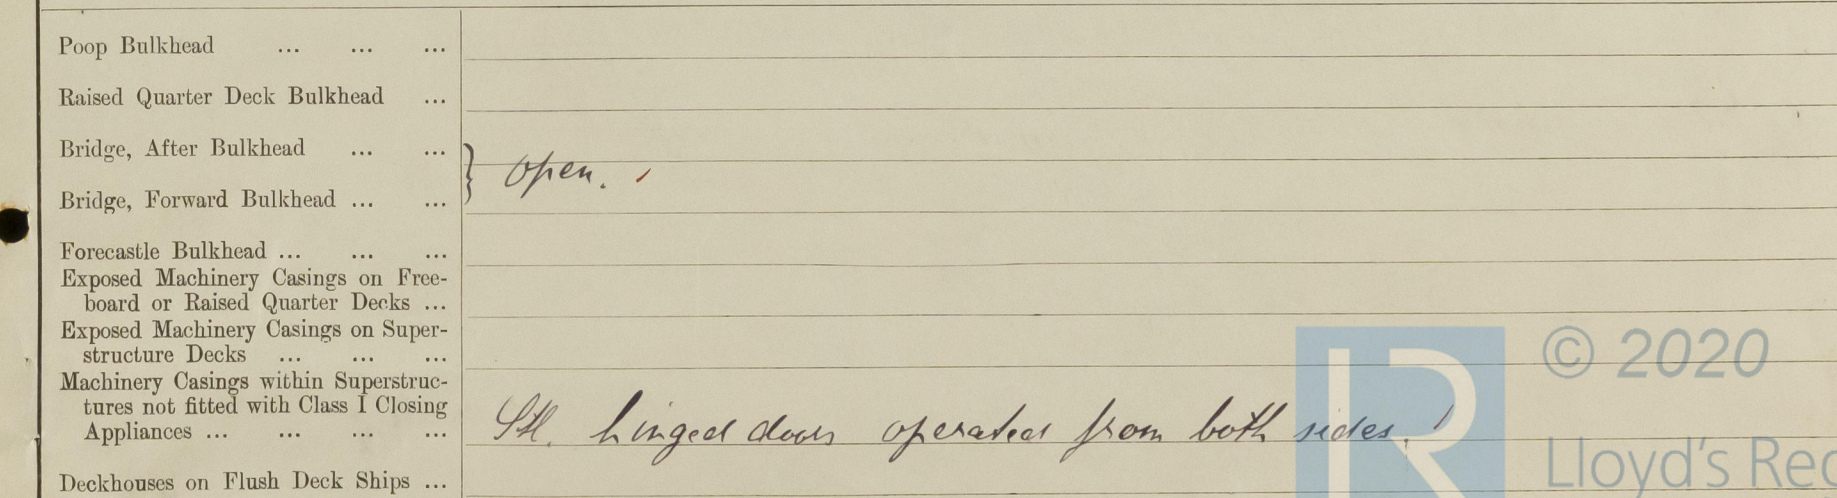 Poop Bulkhead ... ... ...
Raised Quarter Deck Bulkhead ...
Bridge, After Bulkhead ... ...
} open.
Bridge, Forward Bulkhead ... ...
Forecastle Bulkhead ... ... ...
Exposed Machinery Casings on Free-
board or Raised Quarter Decks ...
Exposed Machinery Casings on Super-
structure Decks ... ... ...
Machinery Casings within Superstruc-
tures not fitted with Class I Closing
Appliances ... ... ... ... Stl. hinged doors operated from both sides.
Deckhouses on Flush Deck Ships ...
© 2020
Lloyd's Rec